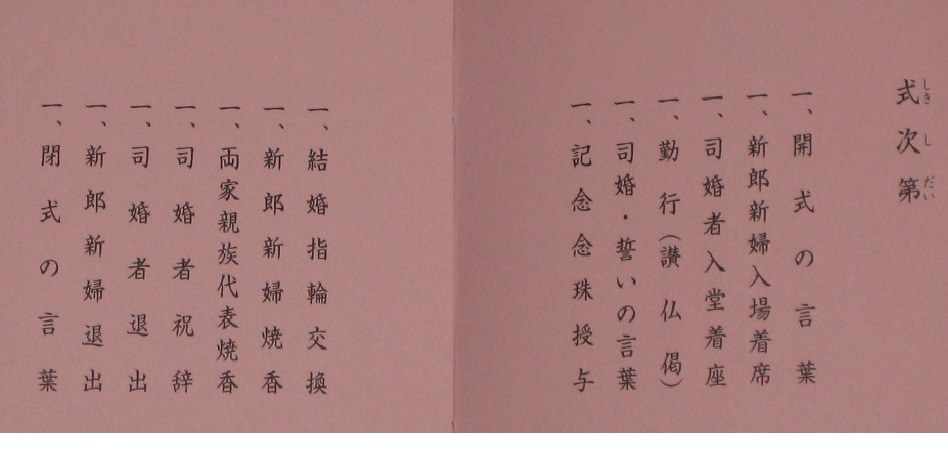 式次第
しきしだい
一、開式の言葉
一、新郎新婦入場着席
一、司婚者入堂着座
一、勤行(讃仏偈)
一、司婚・誓いの言葉
一、記念念珠授与
一、結婚指輪交換
一、新郎新婦焼香
一、両家親族代表焼香
一、司婚者祝辞
一、司婚者退出
一、新郎新婦退出
一、閉式の言葉